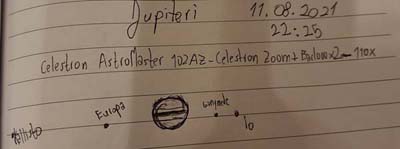 Jupiteri 11.08.2021
22:25
Celestron AstroMaster 102AZ - Celestron Zoom + Barlow x2 - 110x
Europa
Io